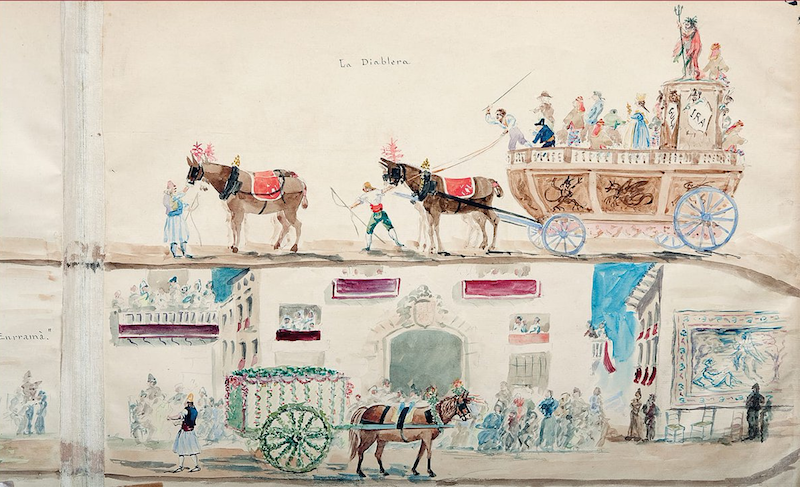 La Diablera
IRA
Enrramà."